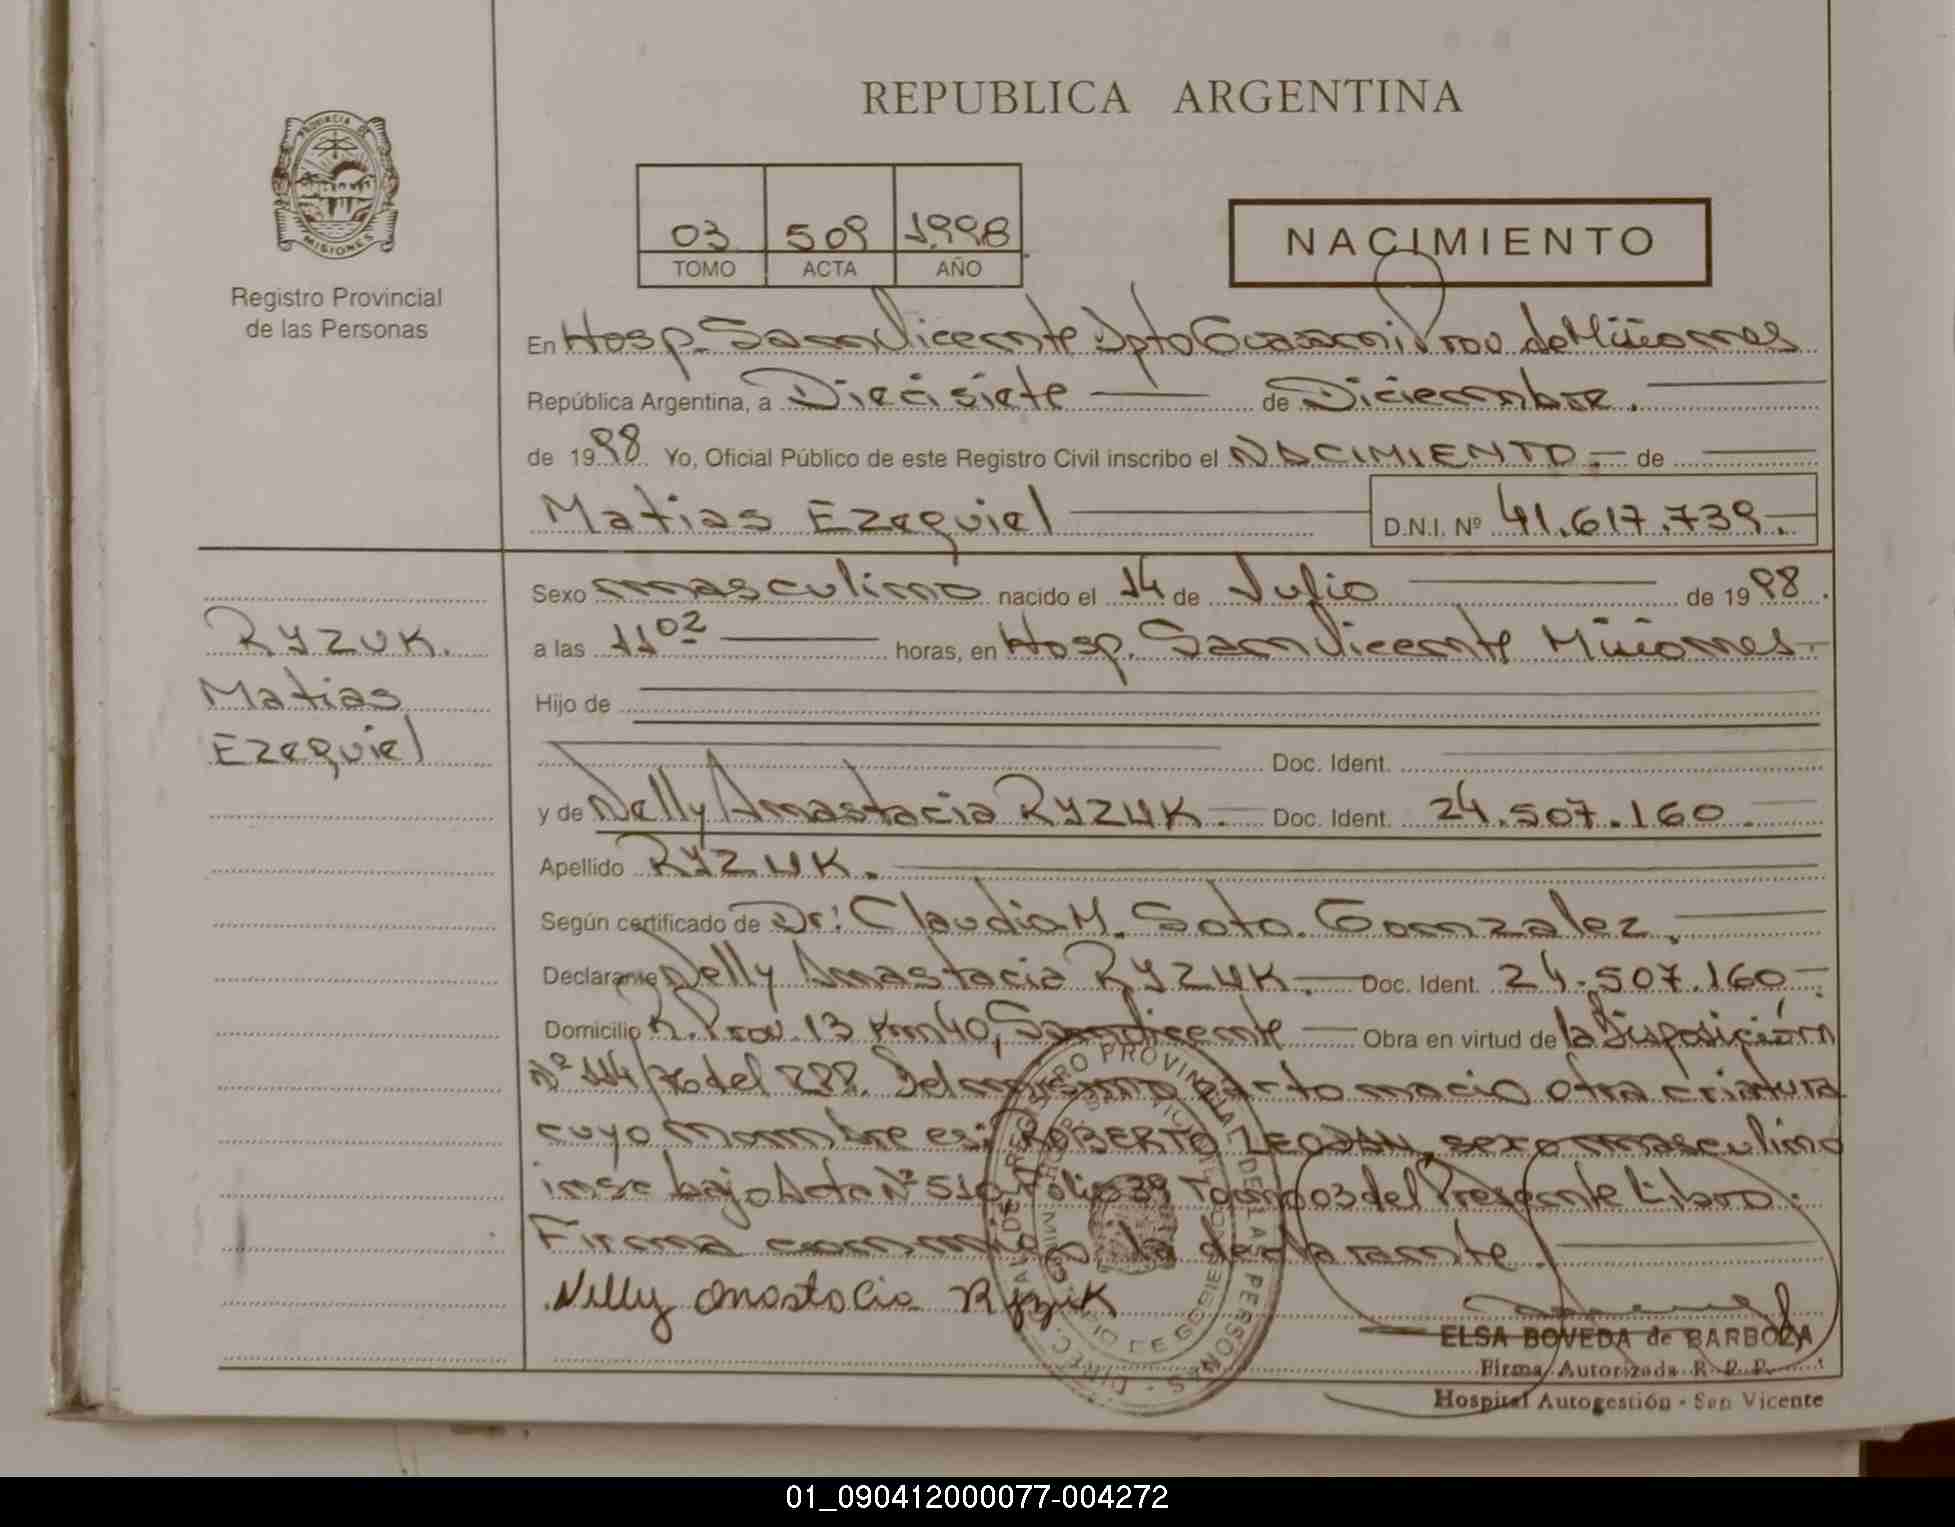 REPUBLICA ARGENTINA
PROVINCIA DE
MISIONES
Registro Provincial
de las Personas
03 509 1998
TOMO ACTA AÑO
NACIMIENTO
En Hosp. San Vicente Dpto Guarani Prov de Misiones
República Argentina, a Diecisiete de Diciembre.
de 1998 Yo, Oficial Público de este Registro Civil inscribo el NACIMIENTO.- de
Matias Ezequiel D.N.I. Nº 41.617.739.-
Sexo masculino nacido el 14 de Julio de 1998.
RYZUK.
Matias
Ezequiel
a las 11⁰² horas, en Hosp. San Vicente Misiones.-
Hijo de
Doc. Ident.
y de Nelly Anastacia RYZUK.- Doc. Ident. 24.507.160.-
Apellido RYZUK.
Según certificado de Dr: Claudia M. Soto. Gonzalez.
Declarante Nelly Anastacia RYZUK.- Doc. Ident. 24.507.160.-
Domicilio R. Prov. 13 Km 40, San Vicente Obra en virtud de la Disposición
Nº 114/76 del Del mismo parto nacio otra criatura
cuyo nombre es: ROBERTO sexo masculino
insc bajo Acta Nº 510 Folio 39 Tomo 03 del Presente Libro.
Firma conmigo la declarante.
Nelly Anastacia Ryzuk
ELSA BOVEDA de BARBOZA
Firma Autorizada R. P. P.
Hospital Autogestión - San Vicente
01_090412000077-004272